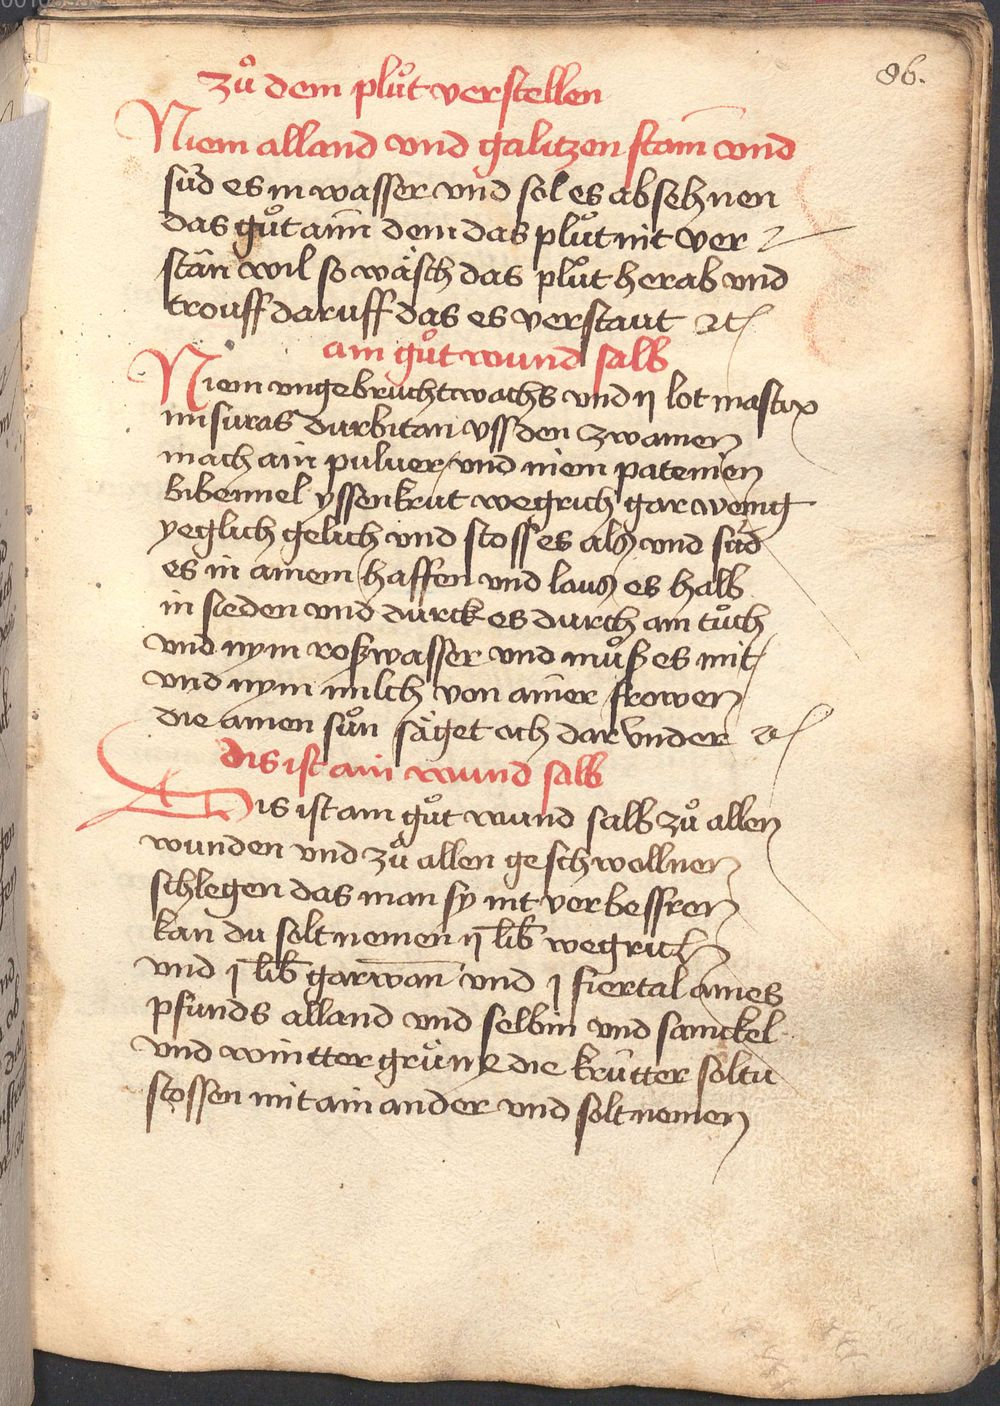 86.
zů dem plůt verstellen
Niem alland vnd galitzen stain vnd
süd es in wasser vnd sol es ab sehnen
das gůt aim dem das plůt nit ver
stân wil so wäsch das plůt herab vnd
trouff daruff das es verstaut etc
ain gůt wund salb
Niem vngebrucht wachs vnd ij lot mastix
mach ain puluer vnd niem patenien
bibennel yssenkrut wegrich gar wenig
yeglich gelich vnd stoss es als vnd süd
es in ainem haffen vnd laus es halb
in sieden vnd durck es durch ain tůch
vnd nym roßwasser vnd můß es mit
vnd nym milch von ainer frowen
die ainen sůn säget och dar vnder etc
dis ist ain wund salb
Dis ist ain gůt wund salb zů allen
wunden vnd zů allen geschwollnen
schlegen das man sy nit verbessren
kan du solt nemen ij lib wegrich
vnd j lib garwan vnd j fiertal aines
pfunds alland vnd selbin vnd sanickel
vnd wintter grüne die krütter soltu
stossen mit ain ander vnd solt nemen